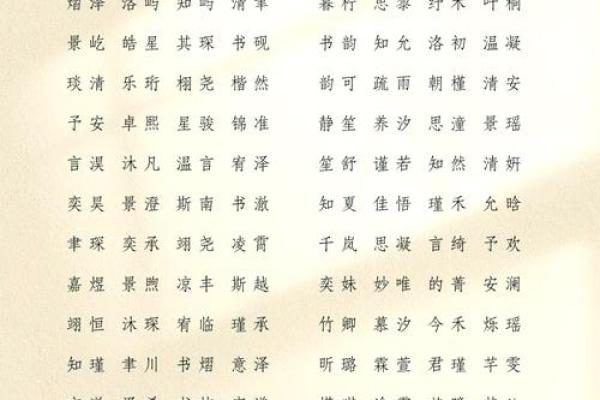 熠泽 洛屿 知屿 清聿 暮柠 思黎 纾禾 叶桐
景屹 皓星 其琛 书砚 书韵 知允 洛初 温凝
琰清 乐珩 栩尧 楷然 韵可 疏雨 朝槿 清安
予安 卓熙 星骏 锦准 静笙 养汐 思潼 景瑶
言淏 沐凡 温言 宥泽 笙舒 谨若 知然 清妍
奕昊 景澄 斯南 书澈 知夏 佳悟 瑾禾 允晗
聿琛 奕承 翊尧 凌霄 千岚 思凝 言绮 予欢
嘉煜 景煦 凉丰 斯越 奕姝 妙唯 的菁 安澜
翊恒 沐琛 宥临 瑾承 竹卿 慕汐 今禾 烁瑶
知瑾 聿川 书熠 意泽 昕璐 霖萱 君瑾 芊雯